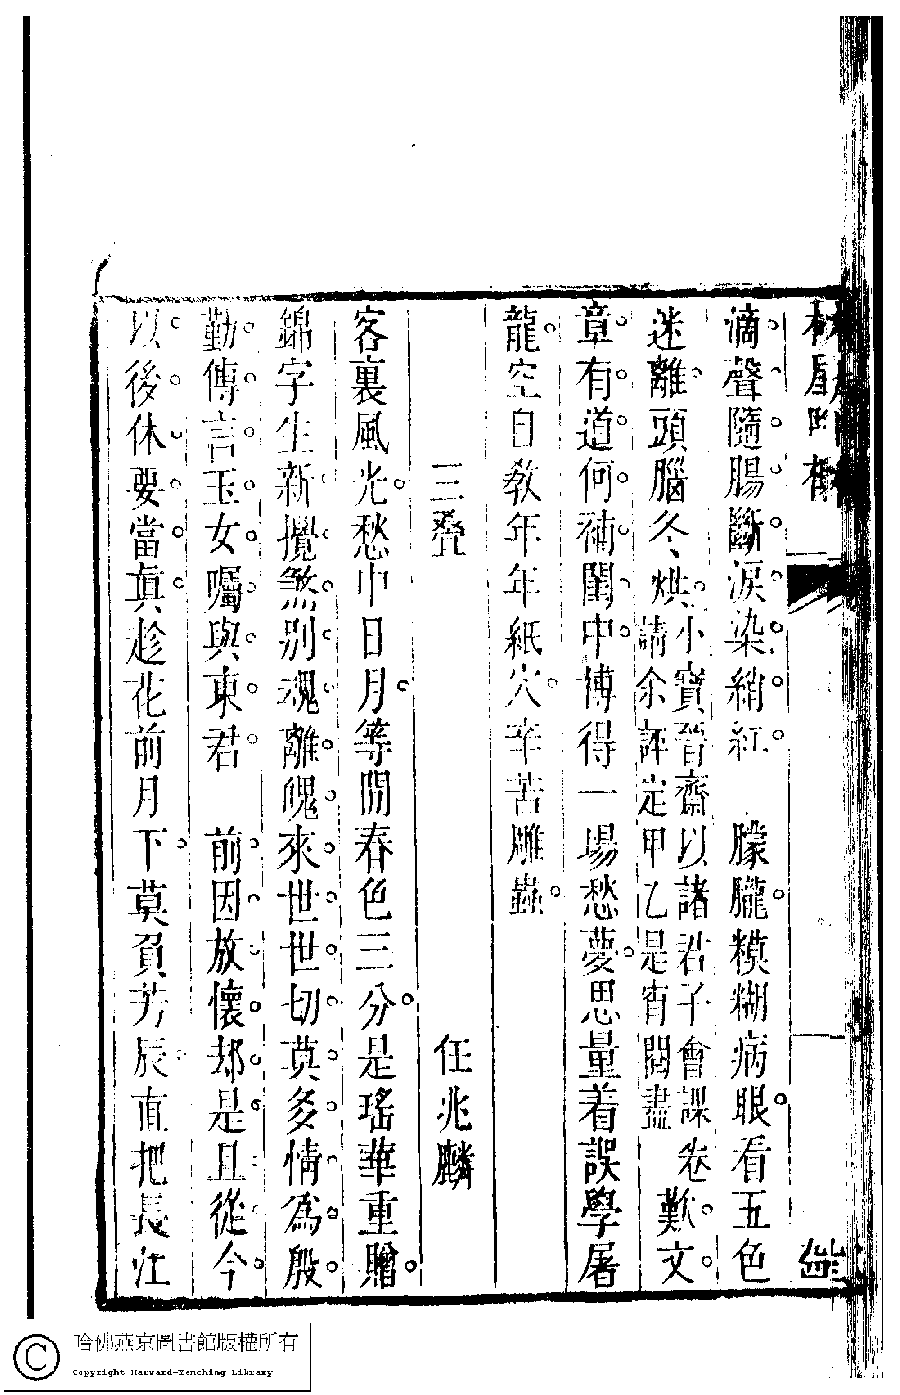 滴聲隨腸斷淚染綃紅　朦朧糢糊病眼看五色
迷離頭腦冬烘小寶晉齋以諸君子會課卷
請余評定甲乙是宵閱盡歎文
章有道何補閨中博得一場愁夢思量着誤學屠
龍空自教年年紙穴辛苦雕蟲
三疊　任兆麟
客裏風光愁中日月等閒春色三分是瑤華重贈
錦字生新攪煞别魂離魄來世世切莫多情為殷
勤傳言玉女囑與東君　前因放懷却是且從今
以後休要當眞趁花前月下莫負芳辰直把長江
哈佛燕京圖書館版權所有
Copyright Harvard-Yenching Library